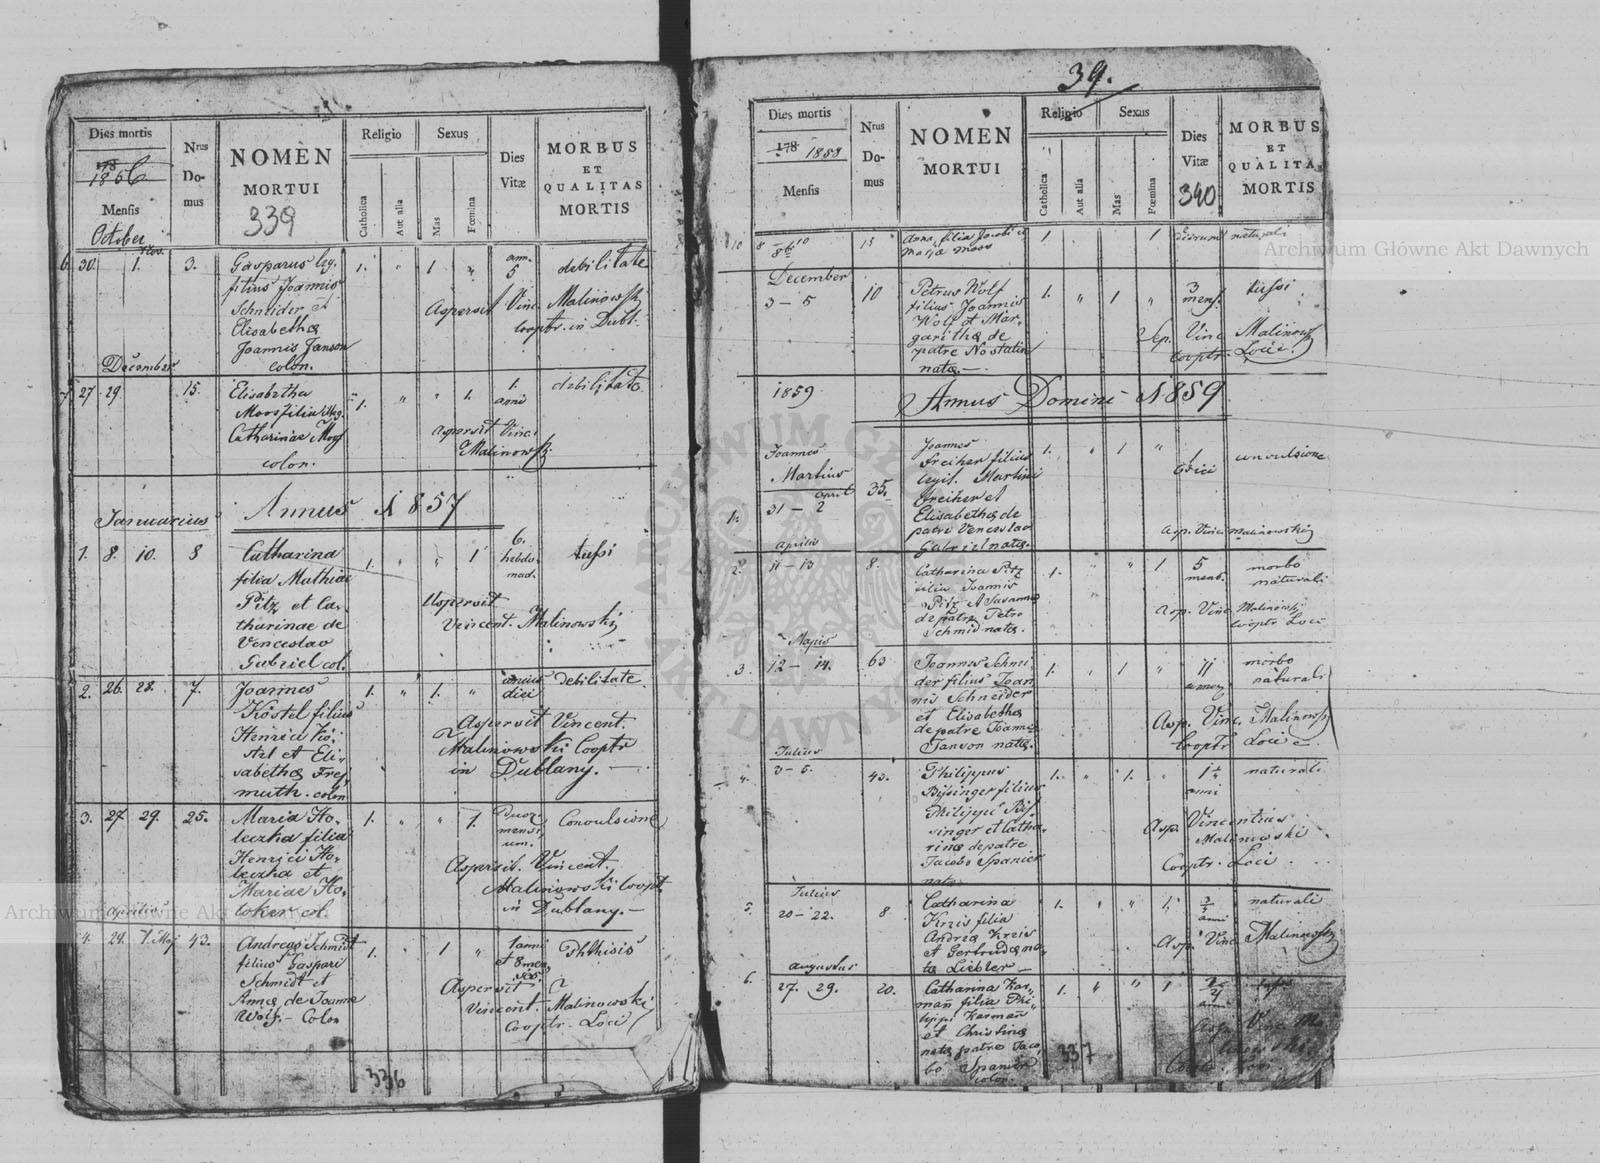 Dies mortis
1856
Mensis
October
Nrus Domus
NOMEN
MORTUI
339
Religio
Catholica
Aut alia
Sexus
Mas
Fœmina
Dies
Vitæ
MORBUS
ET
QUALITAS
MORTIS
Nov.
6. 30. 1. 3. Gasparus leg. 1. " 1 " ann. 5 debilitate
filius Joannis
Schneider et Aspersit Vinc. Malinowski
Elisabethæ Cooptr. in Dubl.
Joannis Janson
colon.
December
7. 27 29. 15. Elisabetha 1. " " 1. 1. anni debilitate
Moos filia illeg.
Catharinae Moos aspersit Vinc.
colon. Malinowski
Annus 1857
Januarius
1. 8. 10. 8 Catharina 1. " " 1 6. hebdomad. tussi
filia Mathiae
Pitz et Ca- Aspersit
tharinae de Vincent. Malinowski
Venceslao
Gabriel col.
2. 26. 28. 7. Joannes 1. " 1. " unius diei debilitate
Köstel filius
Henrici Kö- Aspersit Vincent.
stel et Eli- Malinowski Cooptr
sabethæ Frey in Dublany.
muth. colon
3. 27. 29. 25. Maria Ho- 1. " " 1. Duor mensium. Convulsione
leczka filia
Henrici Ho- Aspersit. Vincent.
leczka et Malinowski Coopt.
Mariae Ho- in Dublany.
loker col.
Aprilis
4. 29. 1. Maj 43. Andreas Schmidt 1. " 1 " 1 anni et 8 mensis Phthisis
filius Gaspari
Schmidt et Aspersit
Annæ de Joanne Vincent. Malinowski
Wolf. Colon Cooptr. Loci
336
39.
Dies mortis
178 1858
Mensis
Nrus
Do-
mus
NOMEN
MORTUI
Religio
Catholica
Aut alia
Sexus
Mas
Fœmina
Dies
Vitæ
340
MORBUS
ET
QUALITAS
MORTIS
10 8 10 13 Anna filia Jacobi et 1. 1 naturali
Maria Moos
December
3 - 5 10 Petrus Wolf 1. " 1 " 3 mens. tussi
filius Joannis
Wolf et Mar- Vinc Malinowski
garithæ de cooptr. Loci.
patre
natæ.
1859 Annus Domini 1859
Joannes
Martius
April
1. 31 - 2 35. Joannes 1. " 1 " convulsione
Freiher filius
legit. Martini
Freiher et
Elisabethæ de
patre Venceslao Asp. Vinc Malinowski
Gabriel natæ.
aprilis
2. 11 - 13 8. Catharina Pitz 1. " " 1 5 mens. morbo naturali
filia Joannis
Pitz et Susannæ Asp. Vinc Malinowski
de patre Petro cooptr Loci
Schmid natæ.
Majus
3. 12 - 14. 63 Joannes Schnei- 1. " 1 " 11 morbo naturali
der filius Joan
nis Schneider
et Elisabethæ Asp. Vinc. Malinowski
de patre Joanne Cooptr Loci
Janson natæ.
Julius
4. 3 - 5. 43. Philippus 1. " 1. " anni naturali
Bisinger filius
Philippi Bis
singer et Catha- Asp. Vincentius
rinæ de patre Malinowski
Jacobo Spanier Cooptr. Loci
natæ
Julius
5. 20 - 22. 8 Catharina 1. " " 1. anni naturali
Kreis filia
Andreæ Kreis Asp. Vinc Malinowski
et Gertrudæ na-
tæ Liebler
augustus
6. 27. 29. 20. Catharina Kar- 1. " " 1 anni
mañ filia Phi-
lippi Karmañ Asp. Vinc
et Christinæ
natæ patre Jaco-
bo Spanier
colon.
337
Archiwum Główne Akt Dawnych
Archiwum Główne Akt Dawnych
ARCHIWUM GŁÓWNE AKT DAWNYCH